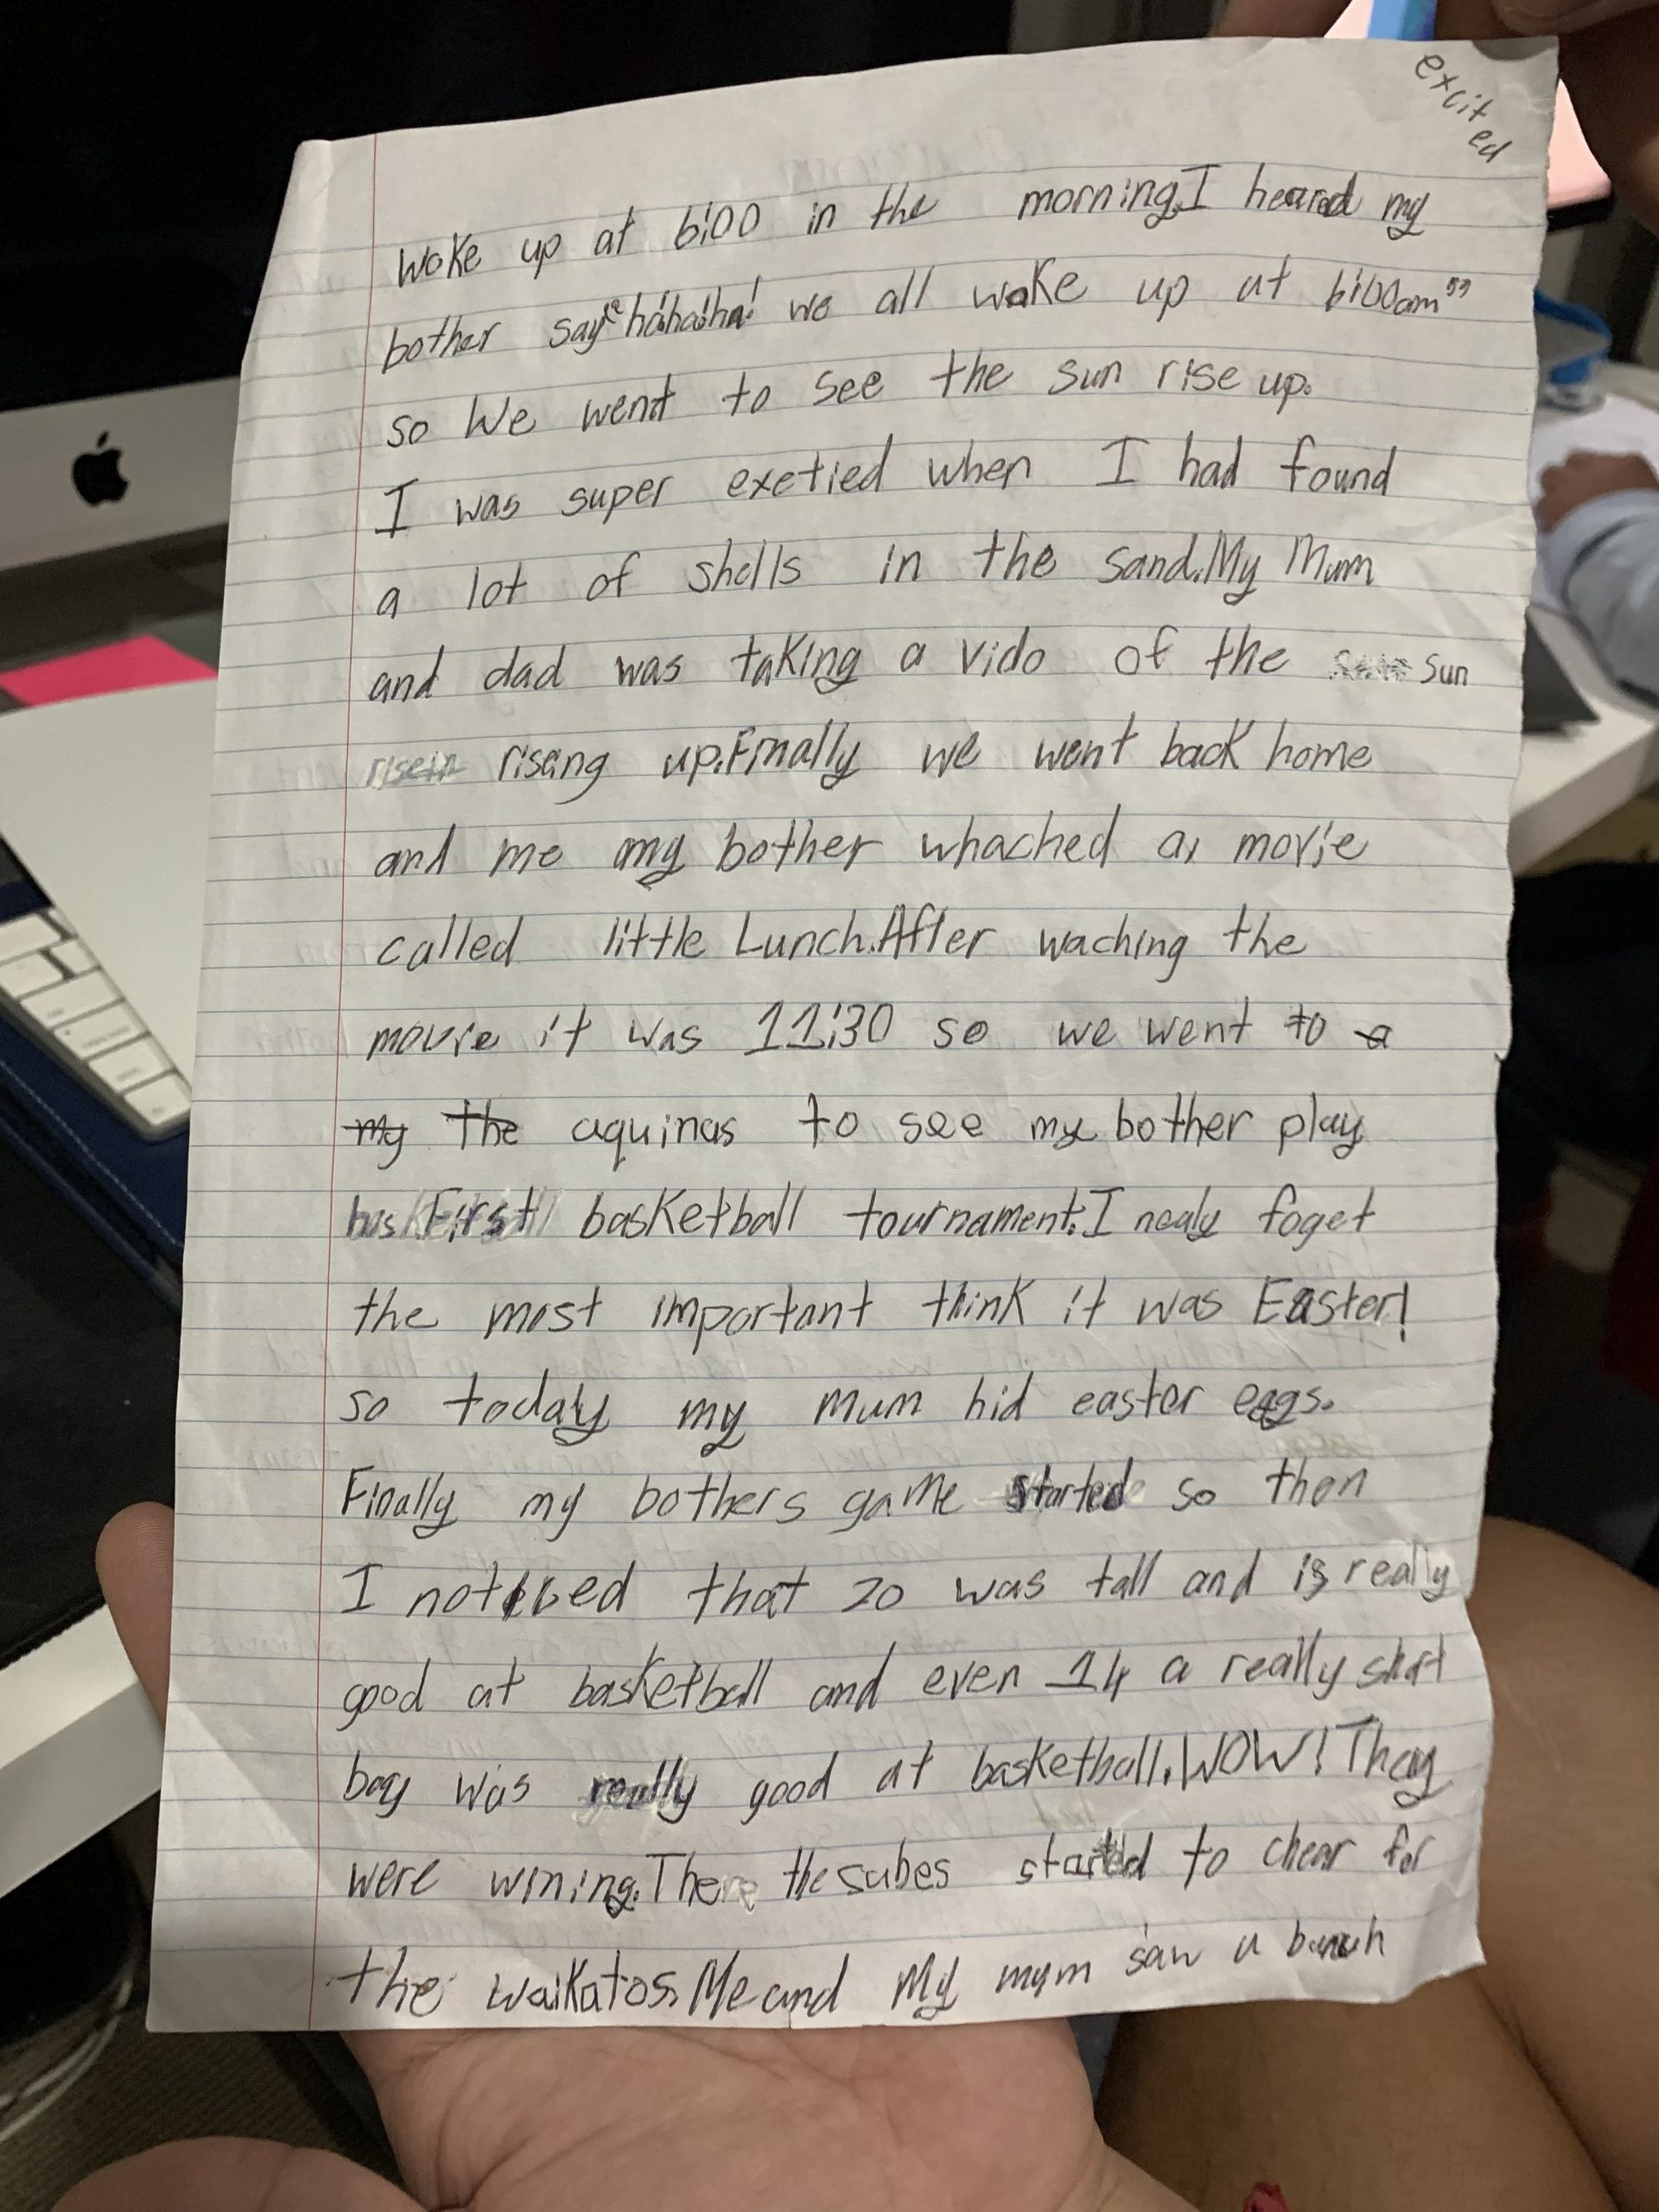 excited
Woke up at 6:00 in the morning.I heared my
bother say"ha!ha!ha! we all woke up at 6:00am"
so We went to see the sun rise up.
I was super exetied when I had found
a lot of shells in the sand.My Mum
and dad was taking a vido of the Sun
risein rising up.Finally we went back home
and me my bother whached a movie
called little Lunch.After waching the
movie it was 11:30 so we went to a
my the aquinas to see my bother play
First basketball tournament.I nealy foget
the most important think it was Easter!
so today my Mum hid easter eggs.
Finally my bothers game started so then
I noticed that 20 was tall and is really
good at basketball and even 14 a really short
boy was really good at basketball.WOW! They
were wining.There the subes started to chear for
the waikatos.Me and My mum saw a bunch